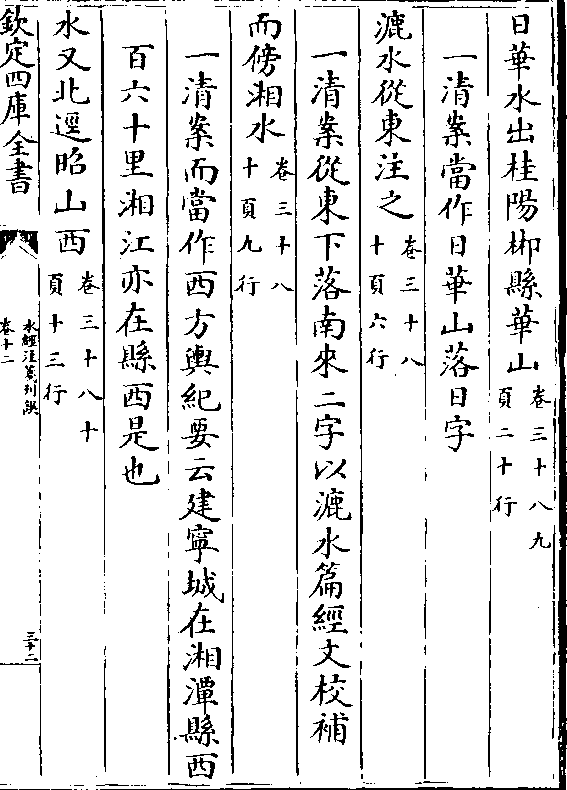 日華水出桂陽郴縣華山卷三十八九頁二十行
一清案當作日華山落日字
漉水從東注之卷三十八十頁六行
一清案從東下落南來二字以漉水篇經文校補
而傍湘水卷三十八十頁九行
一清案而當作西方輿紀要云建寧城在湘潭縣西
百六十里湘江亦在縣西是也
水又北逕昭山西卷三十八十頁十三行
欽定四庫全書
水經注箋刊誤
卷十二
三十二